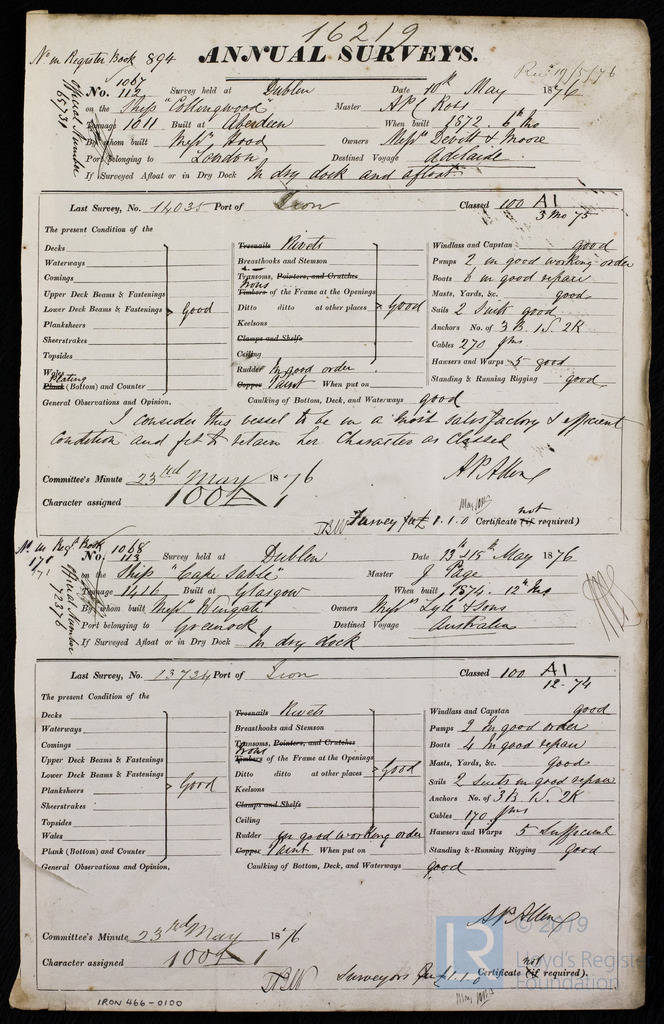 16219
No in Register Book 894
ANNUAL SURVEYS.
Recd 19/5/76
Official Number 65731
No. 1067 112 Survey held at Dublin Date 10th May 1876
on the Ship "Collingwood" Master A P C Ross
Tonnage 1011 Built at Aberdeen When built 1872. 6th Mo
By whom built Messrs Hood Owners Messrs Devitt & Moore
Port belonging to London Destined Voyage Adelaide
If Surveyed Afloat or in Dry Dock In dry dock and afloat
Last Survey, No. 14035 Port of Iron Classed 100 A1
3 Mo 75
The present Condition of the
Decks
Waterways
Comings
Upper Deck Beams & Fastenings
Lower Deck Beams & Fastenings Good
Planksheers
Sheerstrakes
Topsides
Wales
Plating
Plank (Bottom) and Counter
General Observations and Opinion,
Treenails Rivets
Breasthooks and Stemson
Transoms, Pointers, and Crutches
Irons
Timbers of the Frame at the Openings
Ditto ditto at other places Good
Keelsons
Clamps and Shelfs
Ceiling
Rudder In good order
Copper Paint When put on
Caulking of Bottom, Deck, and Waterways good
Windlass and Capstan good
Pumps 2 in good working order
Boats 6 in good repair
Masts, Yards, &c. good
Sails 2 Suits good
Anchors No. of 3 B. 1 S. 2 K
Cables 270 fms
Hawsers and Warps 5 good
Standing & Running Rigging good
I consider this vessel to be in a most satisfactory & efficient
condition and fit to retain her Character as Classed
A P Allen
Committee's Minute 23rd May 1876
Character assigned 100 A 1
Survey fee £1.1.0 Certificate (if not required)
No in Regr Book 171
Official Number 72376
No. 1068 113 Survey held at Dublin Date 13th & 15th May 1876
on the Ship "Cape Sable" Master J Page
Tonnage 1416 Built at Glasgow When built 1874. 12th Mo
By whom built Messrs Wingate Owners Messrs Lyle & Sons
Port belonging to Greenock Destined Voyage Australia
If Surveyed Afloat or in Dry Dock In dry dock
Last Survey, No. 13724 Port of Iron Classed 100 A1
12-74
The present Condition of the
Decks
Waterways
Comings
Upper Deck Beams & Fastenings
Lower Deck Beams & Fastenings
Planksheers Good
Sheerstrakes
Topsides
Wales
Plank (Bottom) and Counter
General Observations and Opinion,
Treenails Rivets
Breasthooks and Stemson
Transoms, Pointers, and Crutches
Irons
Timbers of the Frame at the Openings
Ditto ditto at other places Good
Keelsons
Clamps and Shelfs
Ceiling
Rudder In good working order
Copper Paint When put on
Caulking of Bottom, Deck, and Waterways good
Windlass and Capstan good
Pumps 2 In good order
Boats 4 In good repair
Masts, Yards, &c. good
Sails 2 Suits in good repair
Anchors No. of 3 B. 1 S. 2 K
Cables 170 fms
Hawsers and Warps 5 Sufficient
Standing & Running Rigging good
A P Allen
Committee's Minute 23rd May 1876
Character assigned 100 A 1
Surveyors Fee £1.1.0 Certificate (if not required).
IRON 466-0100
© 2019
Lloyd's Register
Foundation